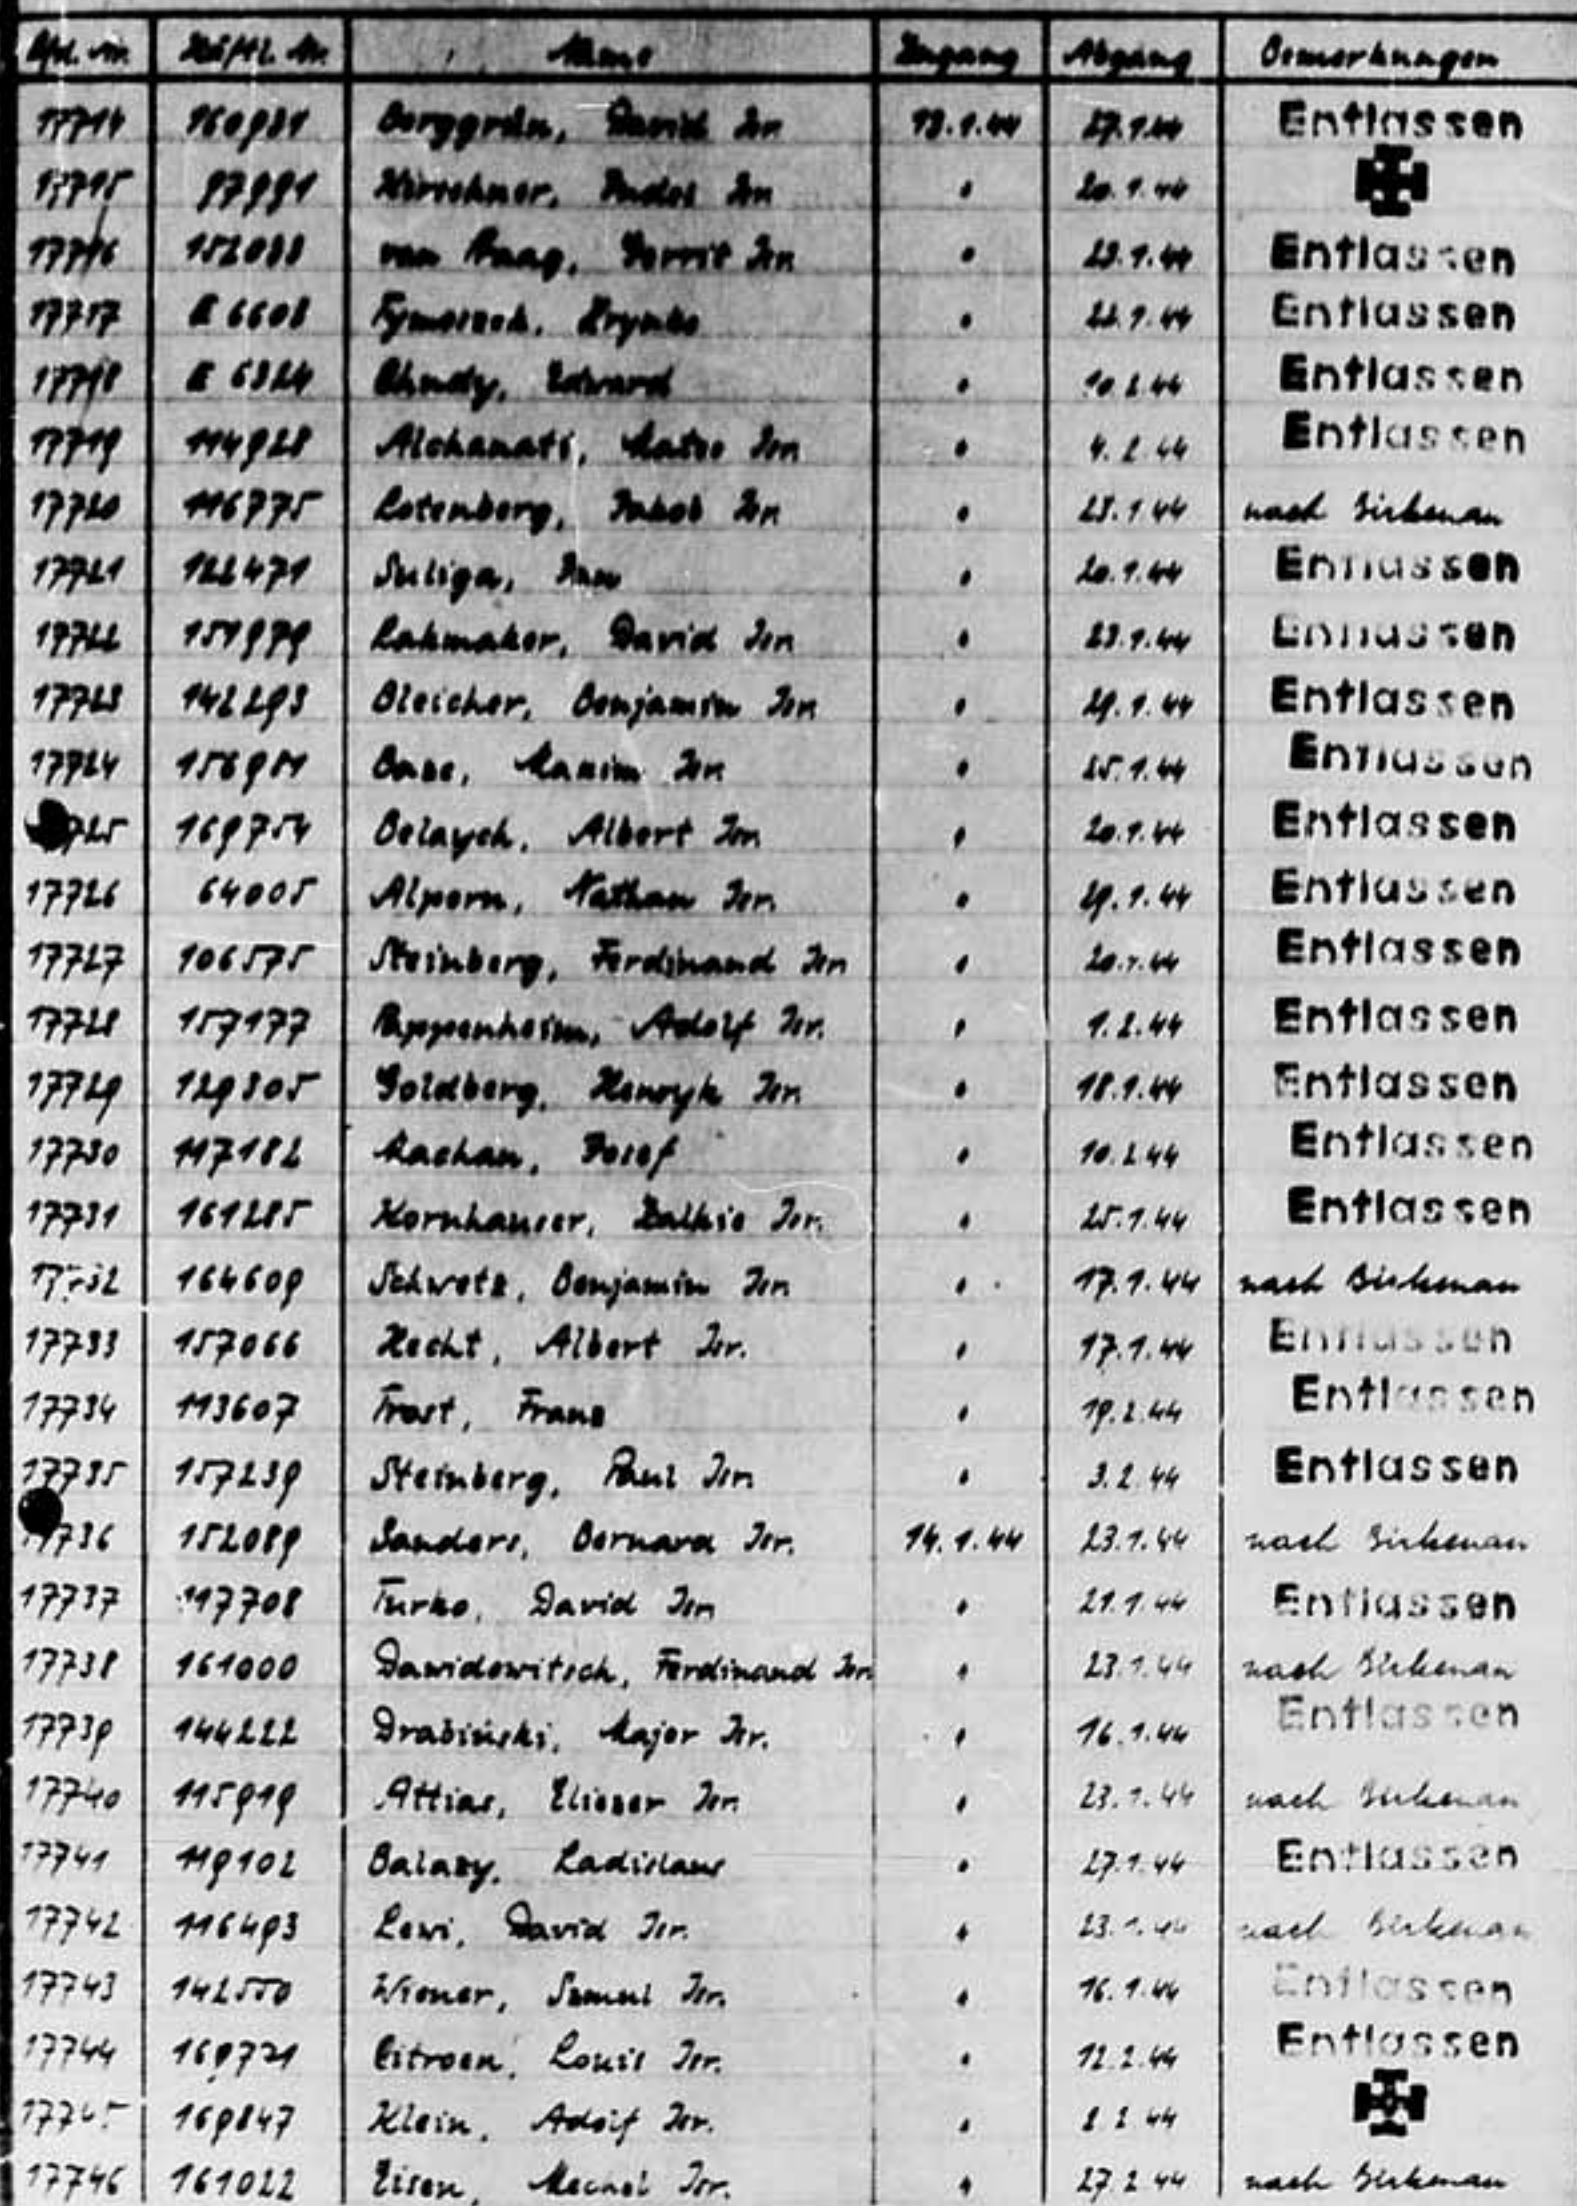 Lfd. Nr. Häftl. Nr. Name Zugang Abgang Bemerkungen
17714 160981 Berggrün, David Isr. 13.1.44 27.1.44 Entlassen
17715 Hirschner, Isr. " 20.1.44
17716 152088 van Praag, Gerrit Isr. " 23.1.44 Entlassen
17717 R 6608 " 22.1.44 Entlassen
17718 R 6324 Edward " 10.2.44 Entlassen
17719 114928 Alchanati, Isr. " 4.2.44 Entlassen
17720 116775 Rotenberg, Jakob Isr. " 23.1.44 nach Birkenau
17721 122471 Suliga, Jan " 20.1.44 Entlassen
17722 151979 Lakmaker, David Isr. " 23.1.44 Entlassen
17723 142293 Bleicher, Benjamin Isr. " 29.1.44 Entlassen
17724 Maxim Isr. " 25.1.44 Entlassen
725 169754 Belaych, Albert Isr. " 20.1.44 Entlassen
17726 64005 Alpern, Nathan Isr. " 29.1.44 Entlassen
17727 106575 Steinberg, Ferdinand Isr. " 20.1.44 Entlassen
17728 157177 Pappenheim, Adolf Isr. " 1.2.44 Entlassen
17729 129305 Goldberg, Henryk Isr. " 18.1.44 Entlassen
17730 117182 Machan, Josef " 10.2.44 Entlassen
17731 161285 Kornhauser, Isr. " 25.1.44 Entlassen
17732 164609 Schwetz, Benjamin Isr. " 17.1.44 nach Birkenau
17733 157066 Hecht, Albert Isr. " 17.1.44 Entlassen
17734 113607 Trost, Franz " 19.2.44 Entlassen
17735 157239 Steinberg, Paul Isr. " 3.2.44 Entlassen
17736 152089 Sanders, Bernard Isr. 14.1.44 23.1.44 nach Birkenau
17737 117708 Turko, David Isr. " 21.1.44 Entlassen
17738 161000 Dawidowitsch, Ferdinand Isr. " 23.1.44 nach Birkenau
17739 144222 Drabiński, Major Isr. " 16.1.44 Entlassen
17740 115919 Attias, Eliezer Isr. " 23.1.44 nach Birkenau
17741 119102 Balazy, Ladislaus " 27.1.44 Entlassen
17742 116493 Lewi, David Isr. " 23.1.44 nach Birkenau
17743 142550 Wiener, Samuel Isr. " 16.1.44 Entlassen
17744 169721 Citroen, Louis Isr. " 12.2.44 Entlassen
17745 169847 Klein, Adolf Isr. " 2.2.44
17746 161022 Eisen, Mechel Isr. " 27.2.44 nach Birkenau